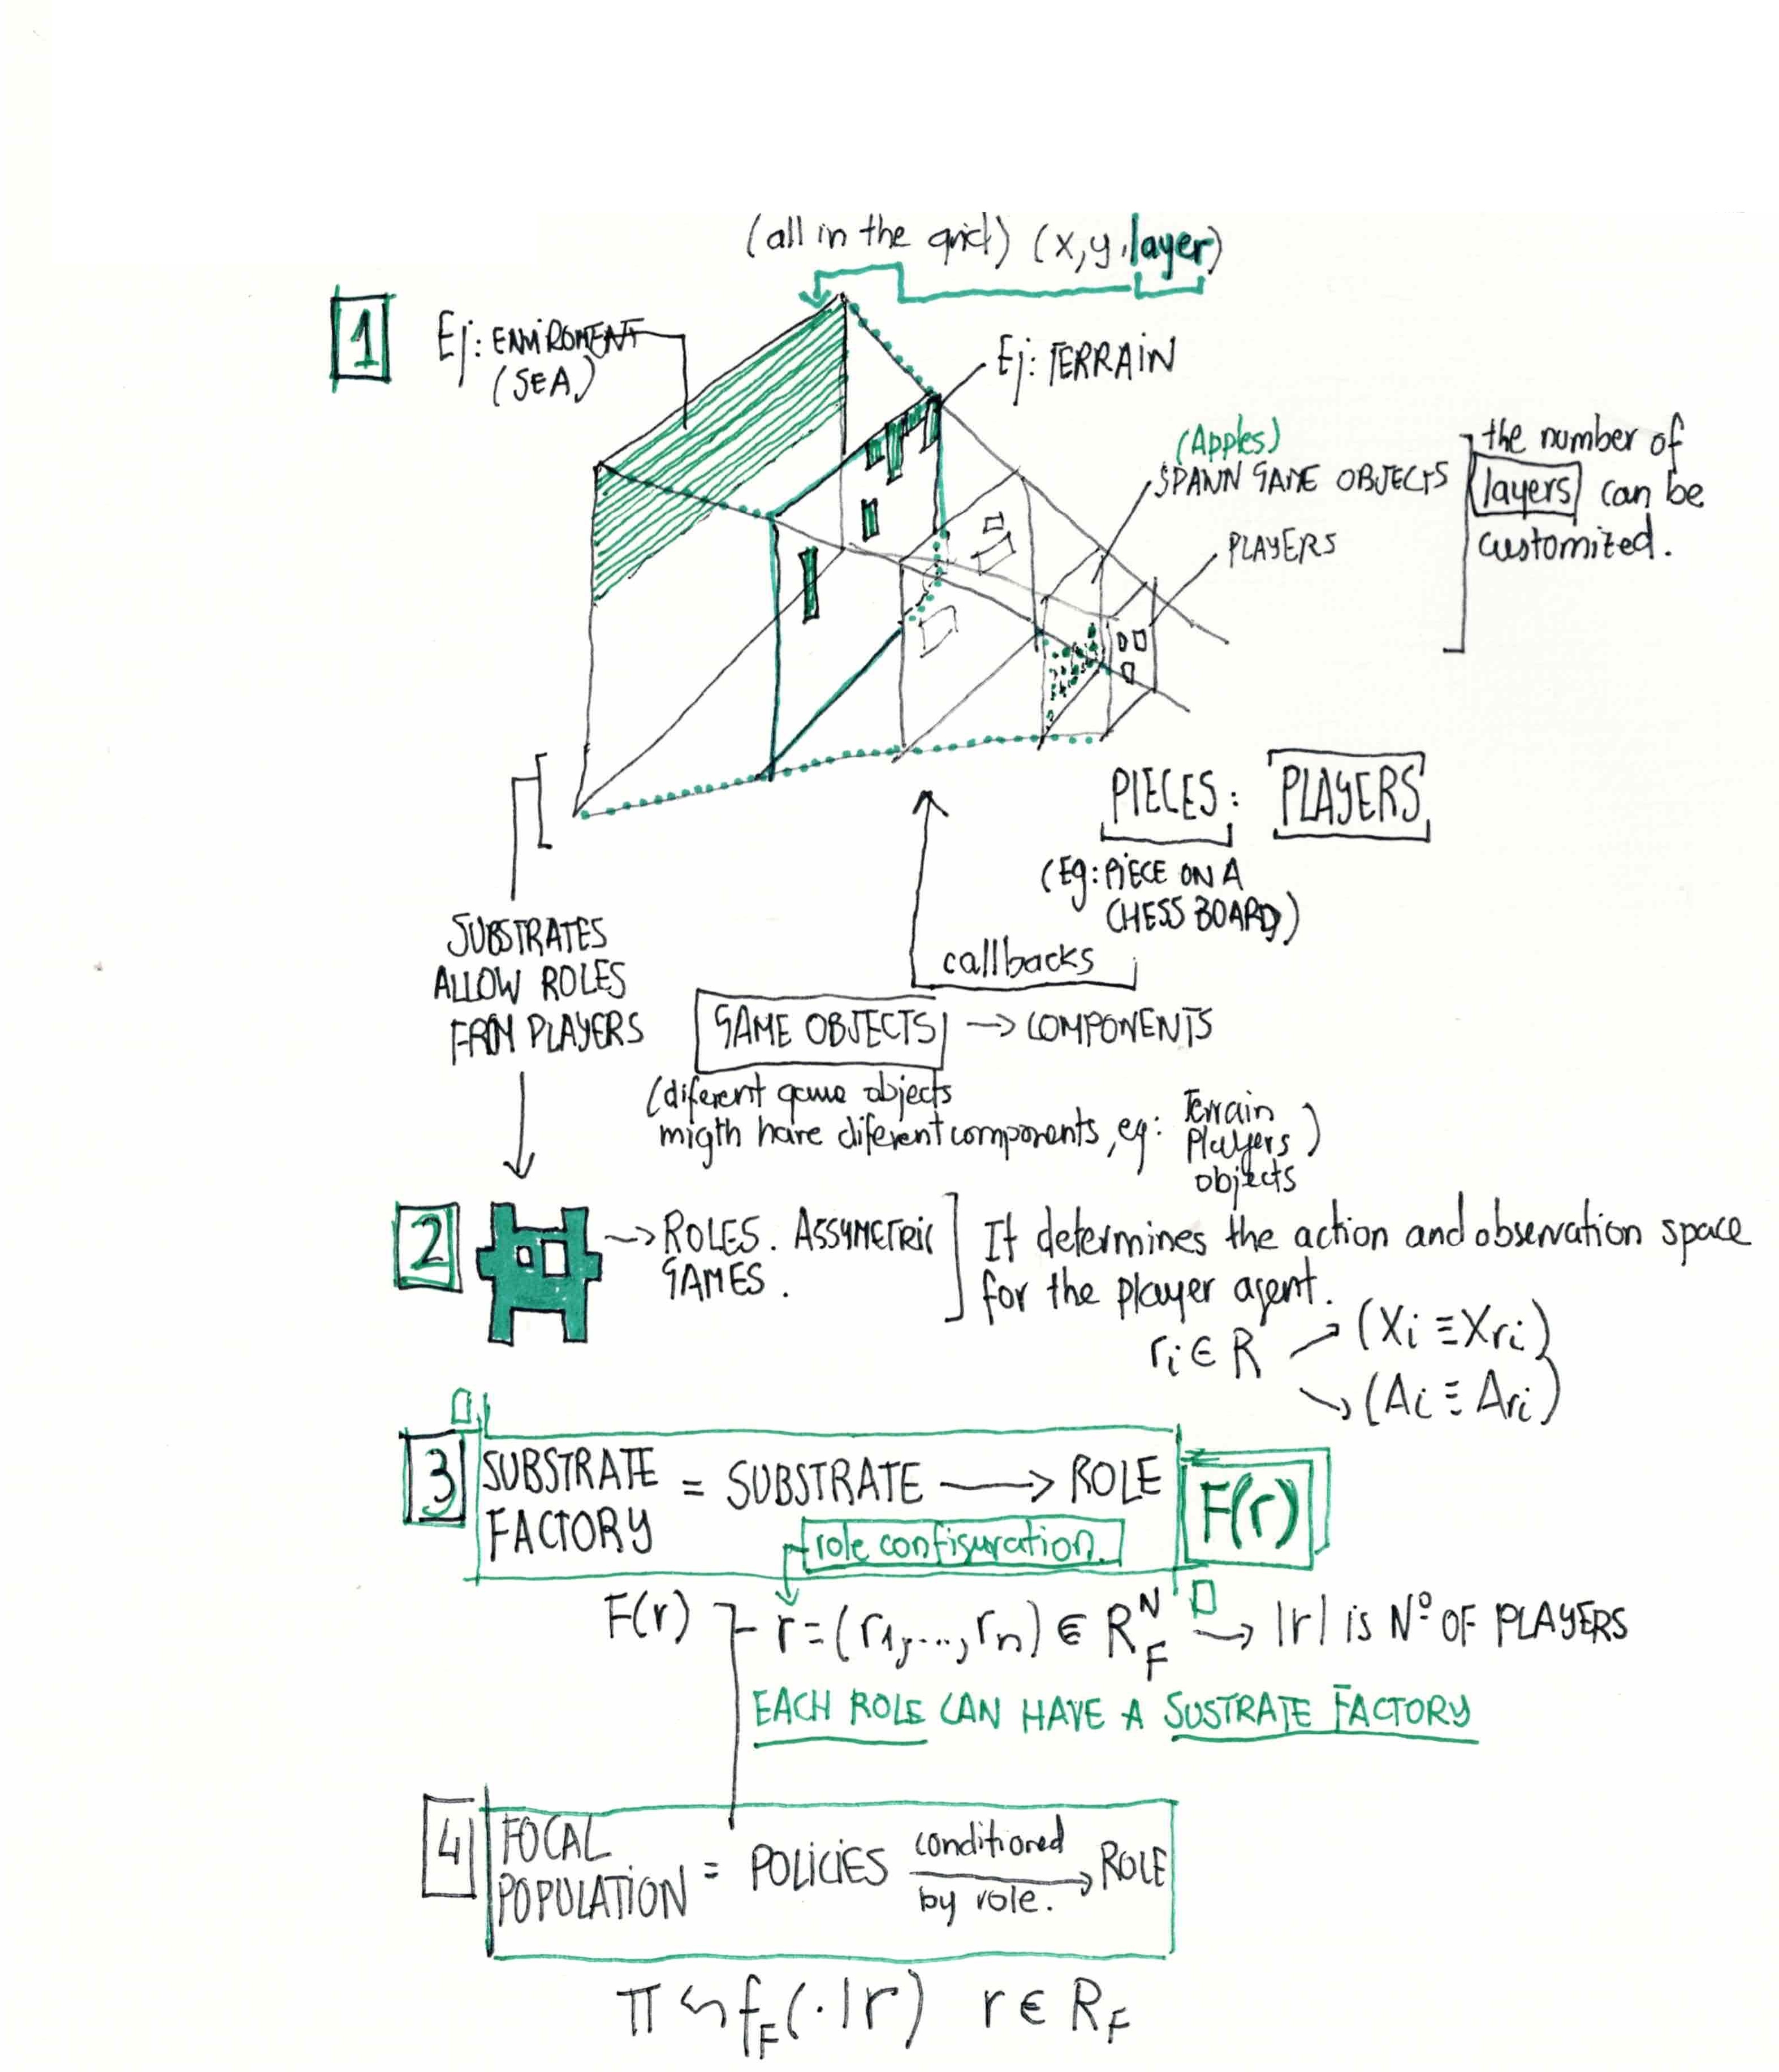 (all in the grid) (x,y,layer)
1
Ej: ENVIROMENT
(SEA)
Ej: TERRAIN
(Apples)
SPAWN GAME OBJECTS
PLAYERS
the number of
layers can be
customized.
PIECES: PLAYERS
(Eg: PIECE ON A
CHESS BOARD)
callbacks
SUBSTRATES
ALLOW ROLES
FROM PLAYERS
GAME OBJECTS → COMPONENTS
(diferent game objects
migth have diferent components, eg: Terrain
Players)
objects
2
→ ROLES. ASSYMETRIC
GAMES.
It determines the action and observation space
for the player agent.
ri ∈ R
(Xi ≡ Xri)
(Ai ≡ Ari)
3
SUBSTRATE
FACTORY
= SUBSTRATE → ROLE
role configuration.
F(r)
F(r)
r = (r1,...,rn) ∈ R^N_F → |r| is Nº OF PLAYERS
EACH ROLE CAN HAVE A SUSTRATE FACTORY
4
FOCAL
POPULATION
= POLICIES conditioned
by role. → ROLE
π ~ fF(·|r) r ∈ RF